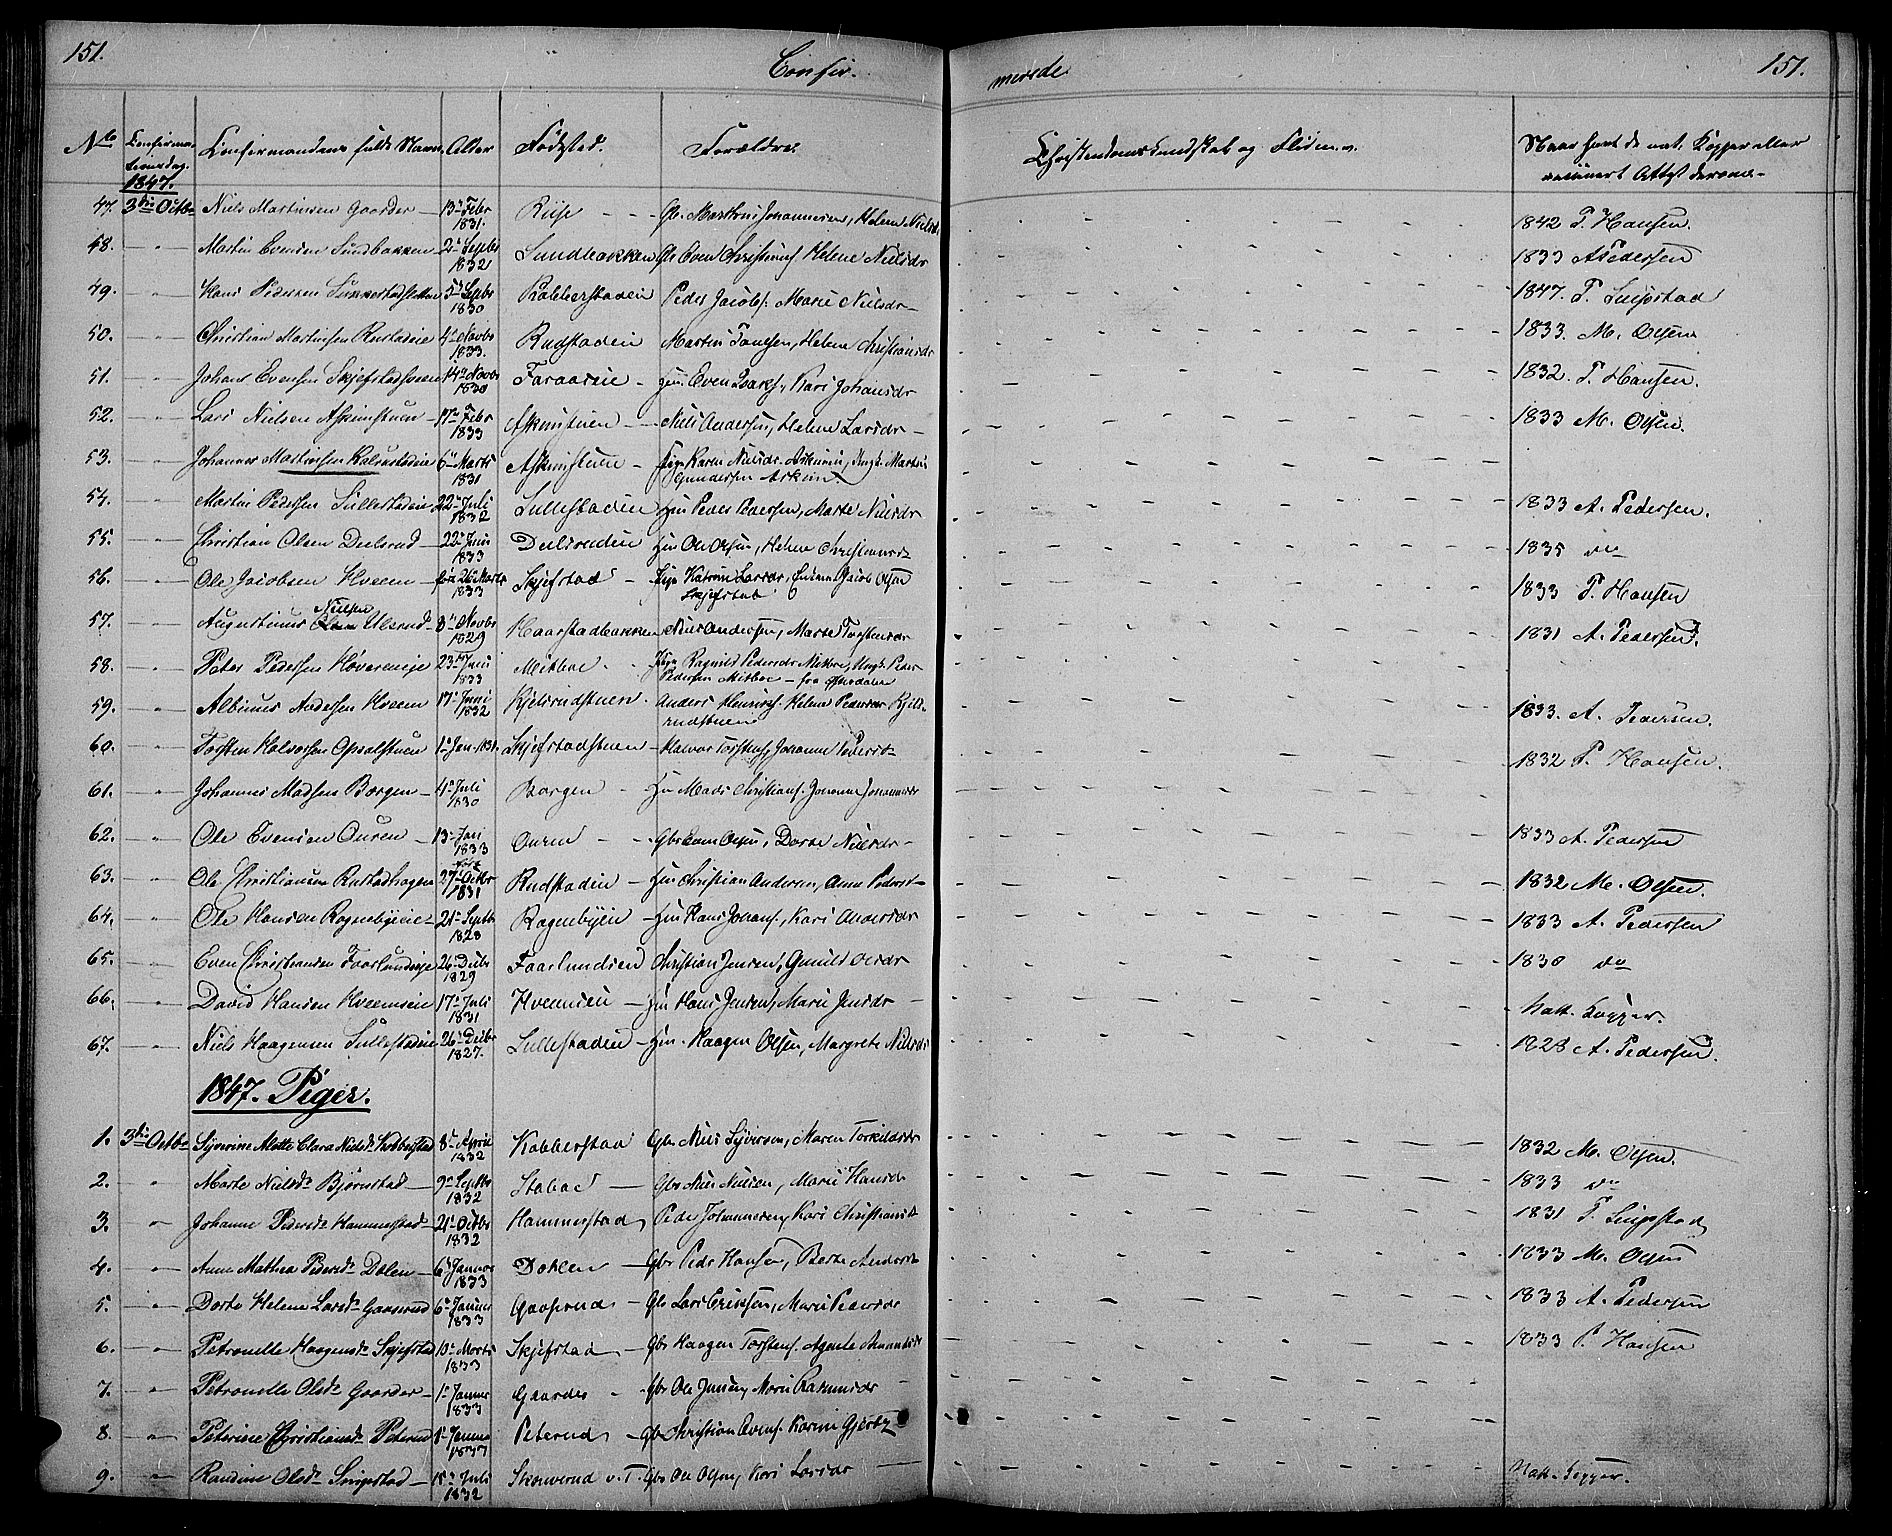 151.
Confir-
merede
151.
No Confirma-tionsdag. Confirmandens fulde Navn. Alder Födsted. Forældre. Christendomskundskab og Flid m. v. Naar havt de nat. Kopper eller
vaccineret Attest derom
1847.
47. 3die Octbr Niels Martinsen Gaarder 13de Febr 1831. Riise Gb. Martinus Johannesen, Helene Nielsdr 1842 P. Hansen.
48. Martin Evensen Sundbakken 2den Septbr 1832 Sundbakken Gb Even Christians. Helene Nielsdr 1833 A Pedersen
49. Hans Pedersen 5te Septbr 1830 Kobberstadeie Peder Jacobs. Marie Nielsdr 1847. P. Luipstad
50. Christian Martinsen Rustadeie 4de Novbr 1833. Rudstadeie Martin Paulsen, Helene Christiansdr 1833. M. Olsen
51. Johans Evensen Skjefstadsveen 14de Novbr 1830 Faraaseie Hm. Even Isaks., Kari Johansdr 1832. P. Hansen.
52. Lars Nielsen Askimstuen 17de Febr 1833 Askimstuen Niels Andersen, Helene Larsdr 1833 M. Olsen.
53. Johannes Martinsen 6te Marts 1831 Askimstuen Pige Karen Nielsdr. Askimeie, Ungk. Martin
Gundersen Askim.
54. Martin Pedersen Lillestadeie 22de Juli 1832 Lillestadeie Hm Peder Pedersen, Marte Nielsdr 1833 A. Pedersen.
55. Christian Olsen Deelsrud 22de Juni 1833 Deelsrudeie Hm Ole Olsen, Helene Christiansdr 1835 do
56. Ole Jacobsen Hveem 26de Marts 1833 Skjefstad Pige Katrine Larsdr, Enkem. Jacob Olsen
Skjefstad 1833 P. Hansen
57. Augustinus Nielsen Ulsrud 8de Novbr 1829 Haarstadbakken Niels Andersen, Marte Torstensdr 1831 A. Pedersen.
58. Peter Pedersen 23de Juni 1833 Mitboe Pige Ragnild Pedersdr Mitboe, Ungk. Peder
Pedersen Mitboe - fra Østerdalen
59. Albinus Andersen Hveem 17de Juni 1832 Kjelsrudstuen Anders Henriks. Helene Pedersdr Kjels-
rudstuen 1833. A. Pedersen.
60. Torsten Halvorsen Opsalstuen 1de Jan. 1831. Skjefstadstuen Halvor Torstens. Johanne Pedersdr 1832 P. Hansen.
61. Johannes Madsen Borgen 4de Juli 1830 Borgen Hm Mads Christians. Johanne Johannesdr
62. Ole Evensen Ouren 13de Jan 1833 Ouren Gbr Even Olsen, Dorte Nielsdr 1833 A. Pedersen
63. Ole Christiansen Rustadhagen 27de Octbr 1831 Rudstadeie Hm Christian Andersen, Anne Pedersdr 1832 M. Olsen.
64. Ole Hansen Rognebyeie 21de Septbr 1828 Rognebyeie Hm Hans Johans., Kari Andersdr 1833 A. Pedersen
65. Even Christiansen Faarlundeie 26de Decbr 1829 Faarlundeie Christian Jensen, Gunild Olsdr 1830 do
66. David Hansen Hveemseie 17de Juli 1831 Hveemseie Hm Hans Jensen, Marie Jensdr Natt. Kopper.
67. Niels Haagensen Lillestadeie 26de Decbr 1827. Lillestadeie Hm. Haagen Olsen, Margrete Nielsdr 1828 A. Pedersen.
1847. Piger.
1. 3die Octbr Syverine Mette Clara Nielsdr Kobberstad 8de April 1832 Kobberstad Gbr Niels Syversen, Maren Torkildsdr 1832 M. Olsen.
2. Marte Nielsdr Bjørnstad 9de Septbr 1832 Stabac Gbr Niels Nielsen, Marie Hansdr 1833 do
3. Johanne Pedersdr Hammerstad 21de Octbr 1832 Hammerstad Peder Johannesen, Kari Christiansdr 1831 P. Luipstad
4. Anne Mathea Pedersdr Dølen 6te Januar 1833 Døhlen Gbr Peder Hansen, Berte Andersdr 1833 M. Olsen
5. Dorte Helene Larsdr Gaasrud 6te Januar 1833 Gaasrud Gb Lars Eriksen, Marie Pedersdr 1833 A. Pedersen
6. Petronelle Haagensdr Skjefstad 10de Marts 1833 Skjefstad Gbr Haagen Torstens. Agnete Amundsdr 1833 P. Hansen
7. Petronelle Olsdr Gaarder 1de Januar 1833 Gaarder Gbr Ole Jensen, Marie Rasmusdr
8. Peterine Christiansdr Peterud 1de Januar 1833 Peterud Gbr Christian Evens. Karine Gjertz
9. Randine Olsdr 15de Juli 1832 Skonnerud v. T. Gbr Ole Olsen, Kari Larsdr Natt. Kopper.